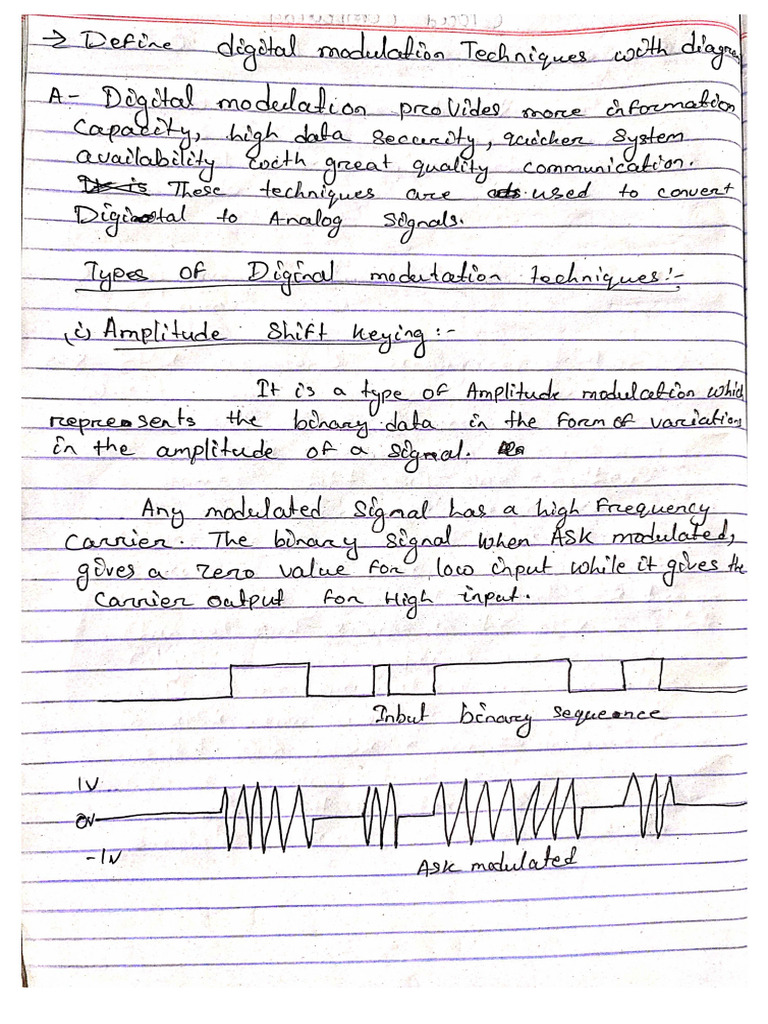 → Define digital modulation Techniques with diagram
A- Digital modulation provides more information
capacity, high data security, quicker system
availability with great quality communication.
These techniques are used to convert
Digital to Analog signals.
Types of Diginal modutation techniques:-
(i) Amplitude Shift Keying :-
It is a type of Amplitude modulation which
represents the binary data in the form of variations
in the amplitude of a signal.
Any modulated signal has a high frequency
carrier. The binary signal when ASK modulated,
gives a zero value for low input while it gives the
carrier output for High input.
Inbut binary sequence
1V
0V
-1V
ASK modulated